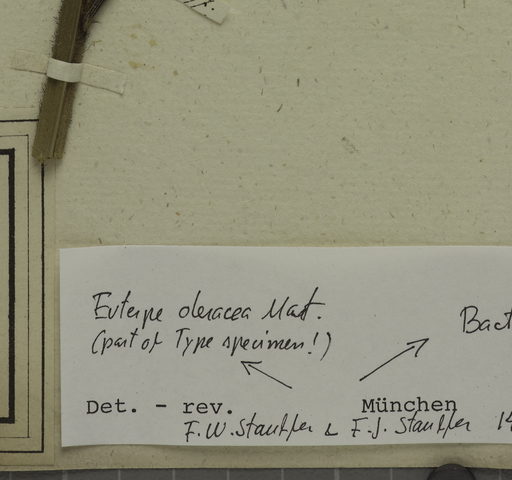 Euterpe oleracea Mart.
(part of Type specimen!)
Bact
Det. - rev. München
F.W. Stauffer & F.J. Stauffer